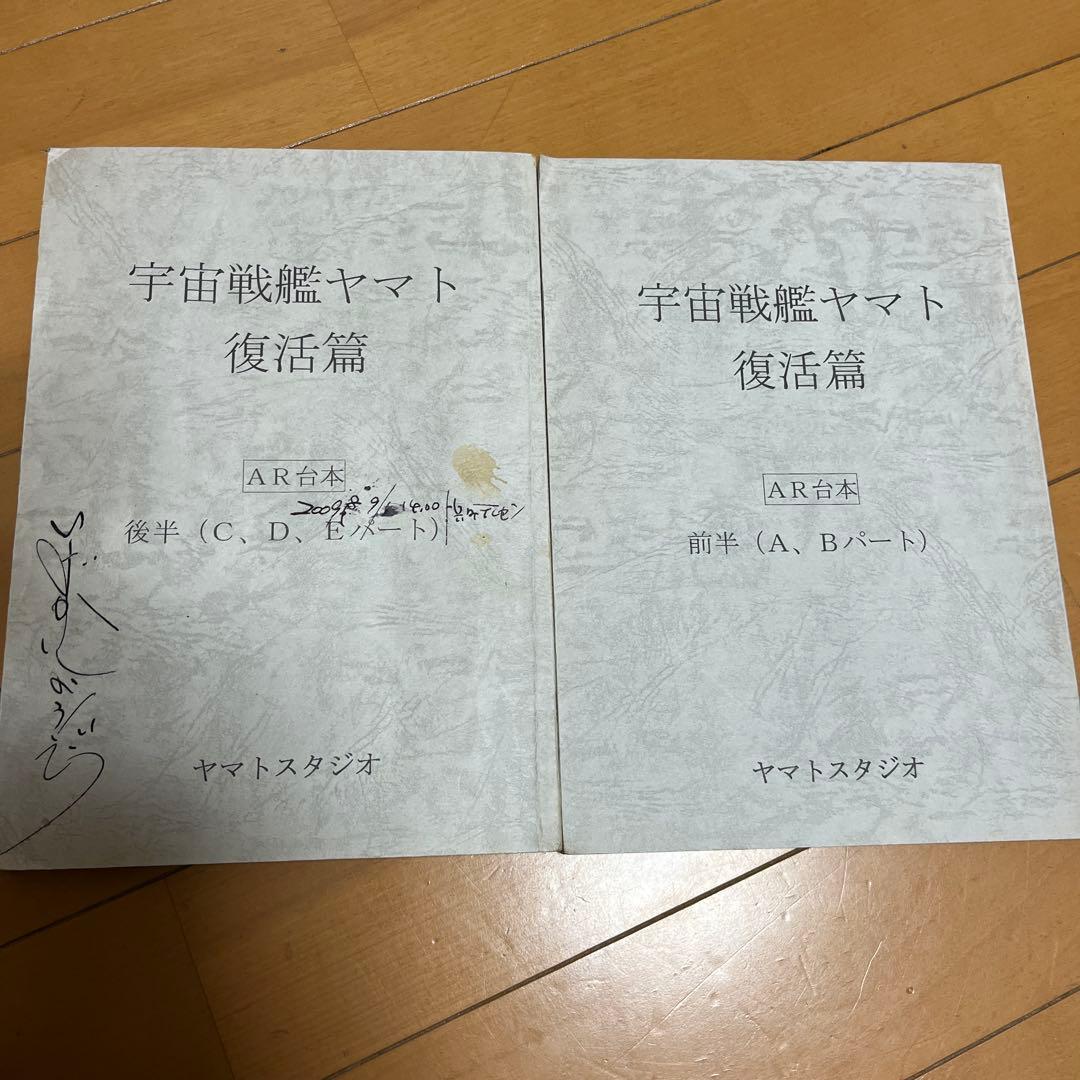 宇宙戦艦ヤマト
復活篇
AR台本
2009 9/ 14:00
後半（C、D、Eパート）
ヤマトスタジオ
宇宙戦艦ヤマト
復活篇
AR台本
前半（A、Bパート）
ヤマトスタジオ